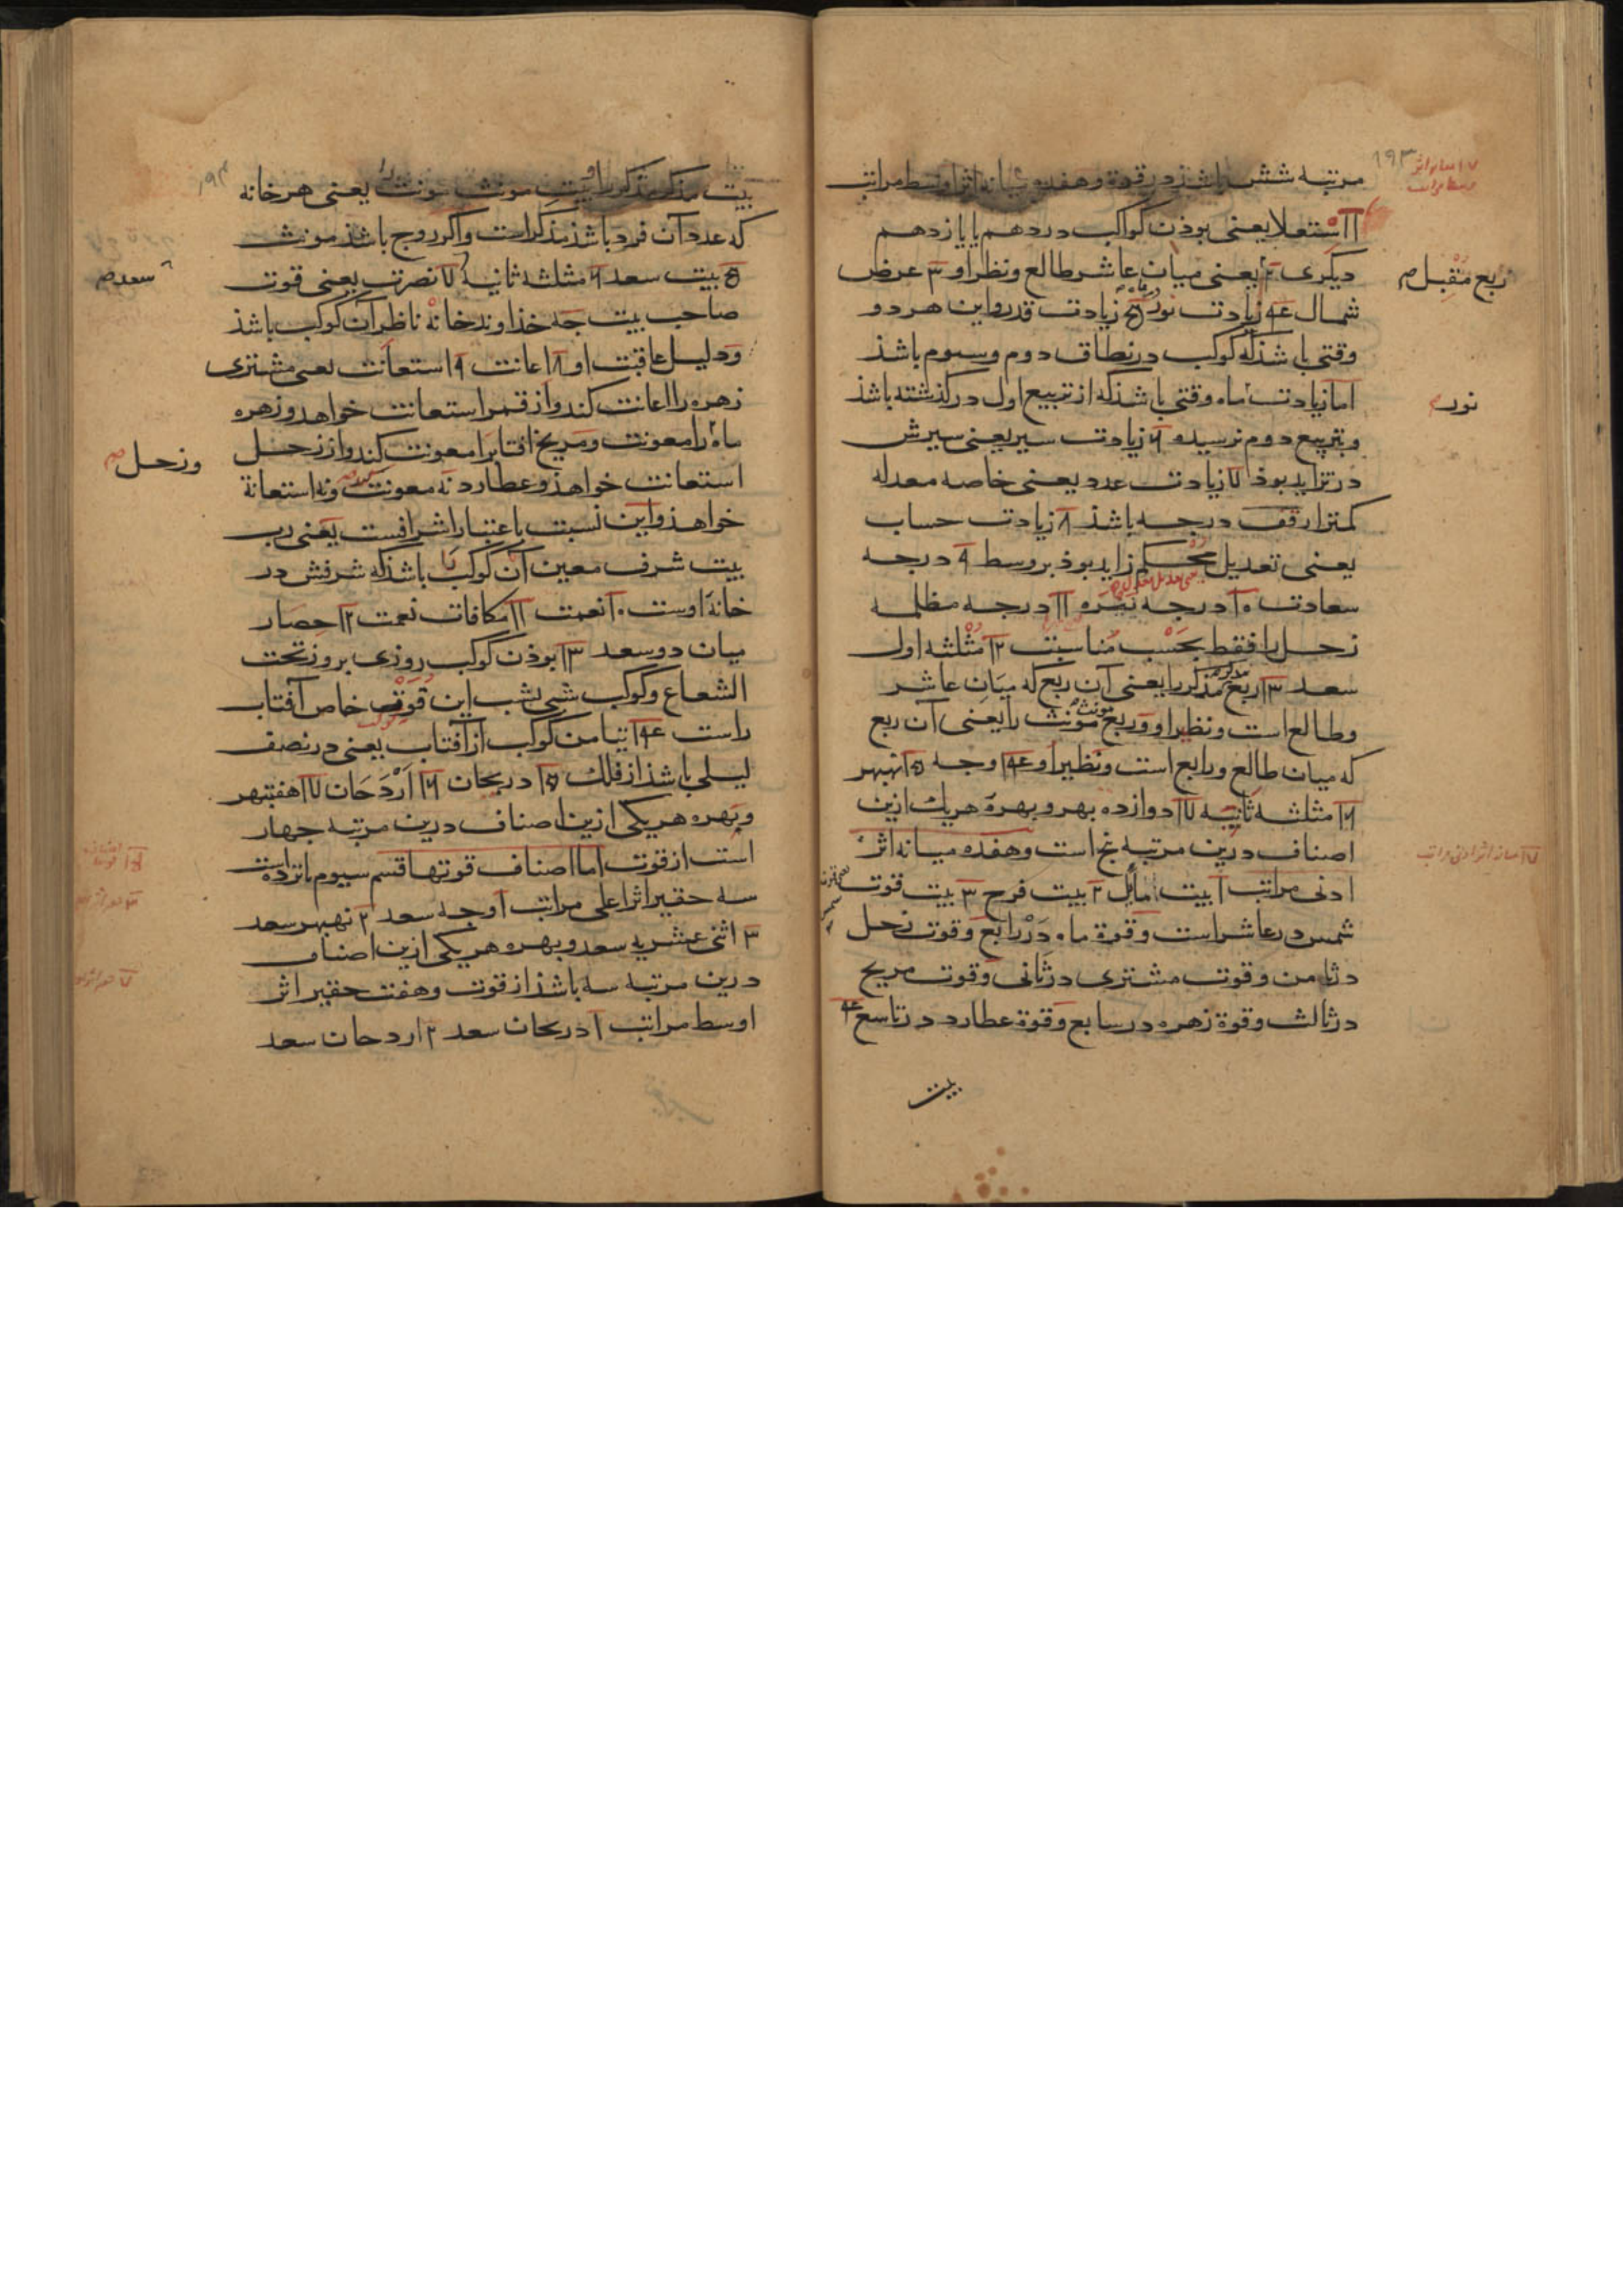 مرتبه شش باشد در قوة و هفده میانه اثر اوسط مراتب
۱۹۳
۱۱ استعلا یعنی بوذن کواکب در دهم یا یازدهم
دیکری ۲ یعنی میان عاشر و طالع و نظر او ۳ عرض
ربع مقبل
شمال ۴ زیادت نور ۵ زیادت قدر و این هر دو
وقتی باشذ که کوکب در نطاق دوم و سیوم باشذ
اما زیادت ماه وقتی باشذ که از تربیع اول در کذشته باشذ
نور
و بتربیع دوم نرسیده ۶ زیادت سیر یعنی سیرش
در تزاید بوذ ۷ زیادت عدد یعنی خاصه معدله
کمتر از قف درجه باشذ ۸ زیادت حساب
یعنی تعدیل محکم زاید بوذ بر وسط ۹ درجه
سعادت ۱۰ درجه نیره ۱۱ درجه مظلمه
زحل را فقط بحسب مناسبت ۱۲ مثلثه اولی
سعد ۱۳ ربع مذکر را یعنی آن ربع که میان عاشر
و طالع است و نظیر او و ربع مونث را یعنی آن ربع
که میان طالع و رابع است و نظیر او ۱۴ وجه ۱۵ نهبهر
۱۶ مثلثه ثانیه ۱۷ دوازده بهر و بهرۀ هر یک ازین
اصناف درین مرتبه پنج است و هفده میانه اثر
۱۷ میانه اثر ادنی مراتب
ادنی مراتب ۱ بیت مایل ۲ بیت فرح ۳ بیت قوت
شمس در عاشر است و قوة ماه در رابع و قوت زحل
در ثامن و قوت مشتری در ثانی و قوت مریخ
در ثالث و قوة زهره در سابع و قوة عطارد در تاسع ۴
بیت
بیت مذکر مذکر را و بیت مونث مونث را یعنی هر خانه
که عدد آن فرد باشذ مذکر است و اکر زوج باشذ مونث
۵ بیت سعد ۶ مثلثه ثانیه ۷ نصرت یعنی قوت
سعد
صاحب بیت جه خذاوند خانه ناظر آن کوکب باشذ
و دلیل عاقبت او ۸ اعانت ۹ استعانت یعنی مشتری
زهره را اعانت کند و از قمر استعانت خواهد و زهره
ماه را معونت و مریخ افتاب را معونت کند و از زحل
و زحل
استعانت خواهذ و عطارد نه معونت و نه استعانة
خواهذ و این نسبت باعتبار اشرافست یعنی رب
بیت شرف معین آن کوکب باشذ که شرفش در
خانه اوست ۱۰ نعمت ۱۱ مکافات نعمت ۱۲ حصار
میان دو سعد ۱۳ بوذن کوکب روزی بروز تحت
الشعاع و کوکب شبی بشب این قوت خاص آفتاب
راست ۱۴ تیامن کوکب از آفتاب یعنی در نصف
لیلی باشذ از فلک ۱۵ دریجان ۱۶ اردجان ۱۷ هفتبهر
و بهره هر یکی ازین اصناف درین مرتبه جهار
است از قوت اما اصناف قوتها قسم سیوم پانزده است
سه حقیر اثر اعلی مراتب ۱ وجه سعد ۲ نهبهر سعد
۳ اثنی عشریه سعد و بهره هر یکی ازین اصناف
درین مرتبه سه باشذ از قوت و هفت حقیر اثر
اوسط مراتب ۱ دریجان سعد ۲ اردجان سعد